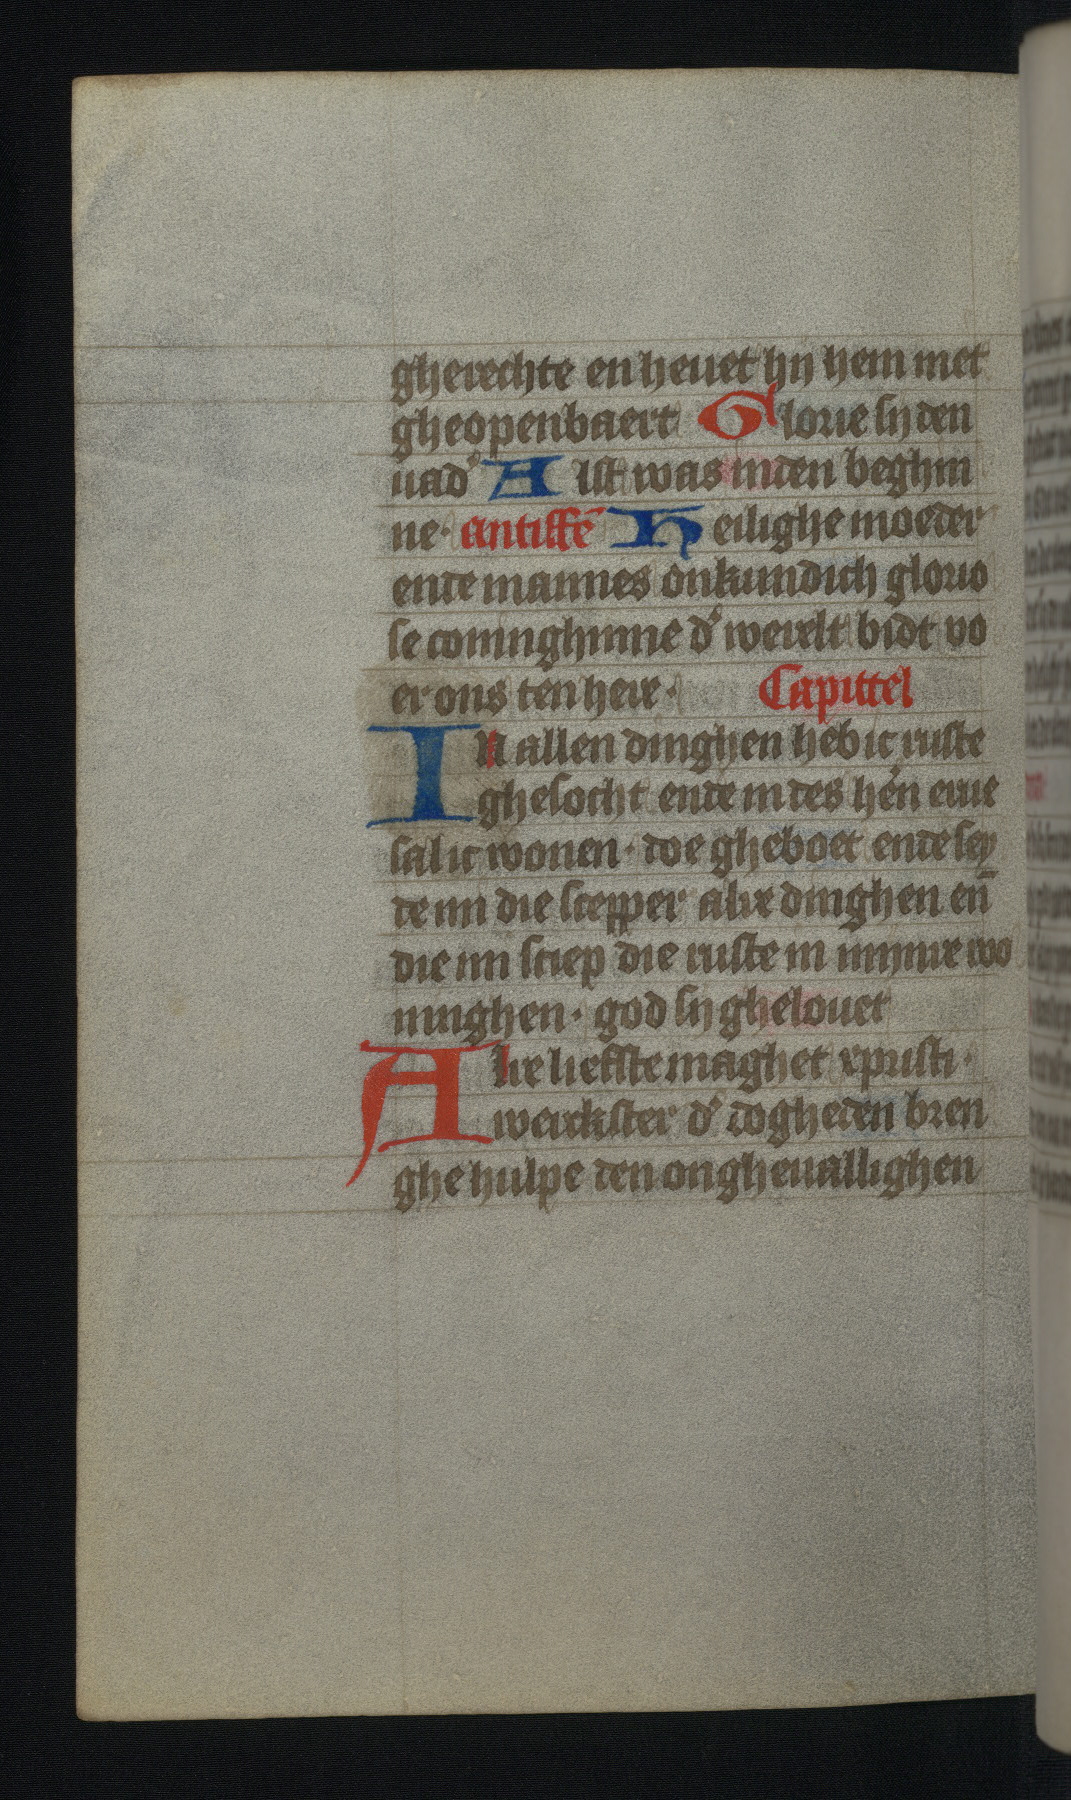 gherechte en heuet hij hem niet
gheopenbaert Glorie sij den
uad' Alst was inden beghin
ne· antiffē Heilighe moeder
ende mannes onkundich glorio
se coninghinne d' werelt bidt vo
er ons ten here· Capittel
In allen dinghen heb ic ruste
ghesocht ende in des hēn erue
sal ic wonen· doe gheboet ende sey
de mi die scepper alre dinghen eñ
die mi sciep die ruste in mijnre wo
ninghen· god sij ghelouet
Alre liefste maghet xpristi·
werckster d' dogheden bren
ghe hulpe den ongheuallighen